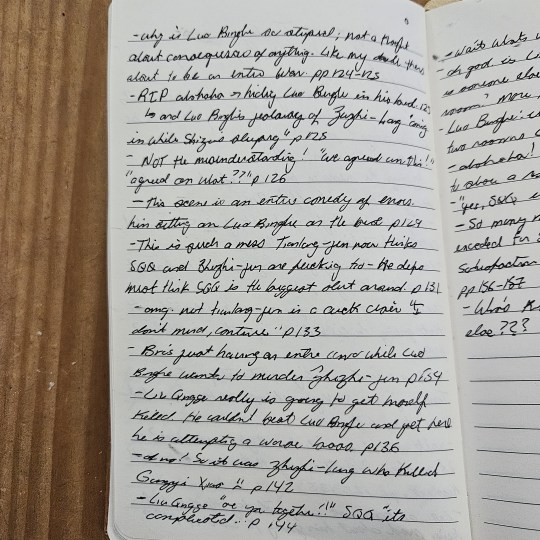 - why is Luo Binghe so stupid; not a thought
about consequences of anything. Like my dude there's
about to be an entire war. pp124-125
- RIP ahahaha → hiding Luo Binghe in his bed p125
↳ and Luo Binghe's jealousy of Zhuzhi-lang "coming
in while Shizun sleeping" p125
- NOT the misunderstanding! "we agreed on this!"
"agreed on what??" p126
- This scene is an entire comedy of errors.
him sitting on Luo Binghe on the bed p129
- This is such a mess Tianlang-jun now thinks
SQQ and Zhuzhi-jun are fucking too - he
must think SQQ is the biggest slut around p131
- omg not tianlang-jun in a cuck chair "I
don't mind, continue" p133
- Bro's just having an entire convo while Luo
Binghe wants to murder Zhuzhi-jun p134
- Liu Qingge really is going to get himself
killed. He couldn't beat Luo Binghe and yet here
he is attempting a worse p136
- oh no! So it was Zhuzhi-lang who killed
Gongyi Xiao p142
- Liu Qingge "are you together?!" SQQ "its
complicated... p144
- waits whats
- oh god is L
is someone else
room! more
- Luo Binghe
two rooms
- ahahaha!
to show a
- "yes, SQQ
- So many
needed for
Satisfaction
pp156-157
- Who's K
else???